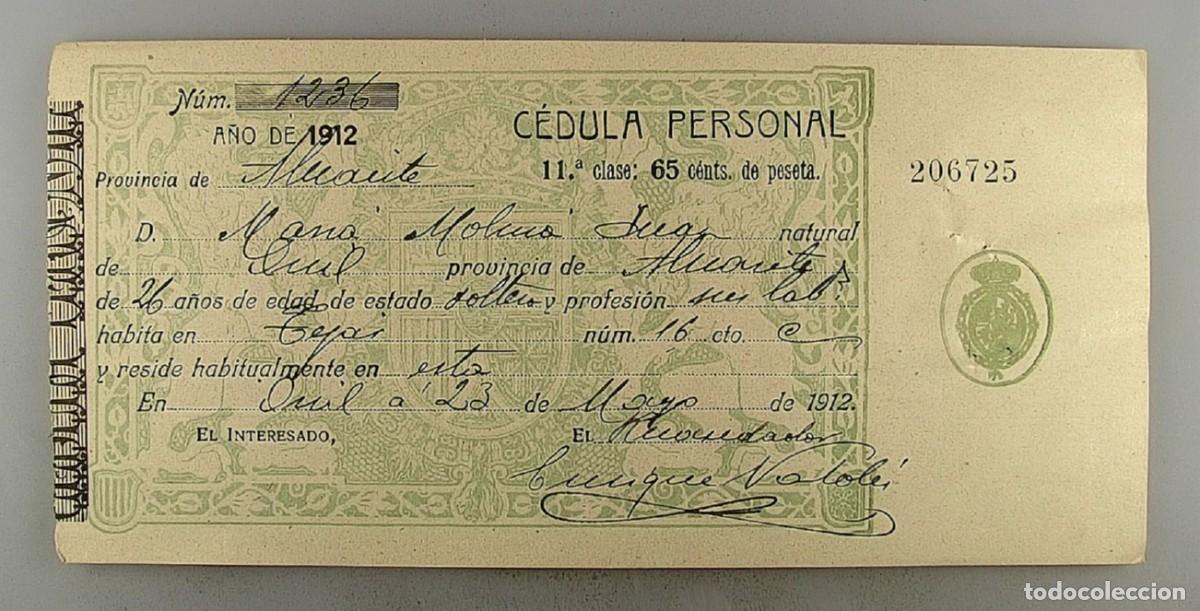 Núm. 1236
AÑO DE 1912
CÉDULA PERSONAL
Provincia de Alicante
11.ª clase: 65 cénts. de peseta.
206725
D. María Molina Juan natural
de Onil provincia de Alicante
de 26 años de edad de estado soltera y profesión sus lab.s
habita en Tejar núm. 16 cto. C
y reside habitualmente en esta
En Onil a 23 de Mayo de 1912.
EL INTERESADO,
EL Recaudador
Enrique
todocoleccion